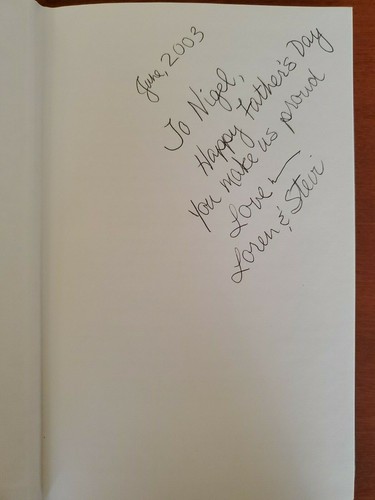 June, 2003
To Nigel,
Happy Father's Day
You make us proud
Love -
Loren & Stevi